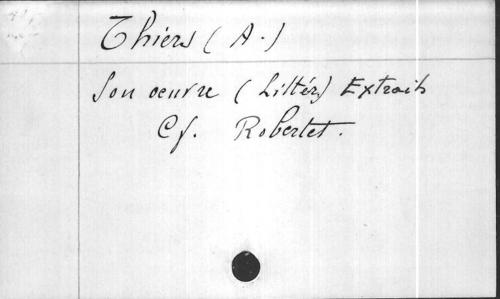 Thiers (A.)
Son oeuvre (Littér) Extraits
Cf. Robertet.